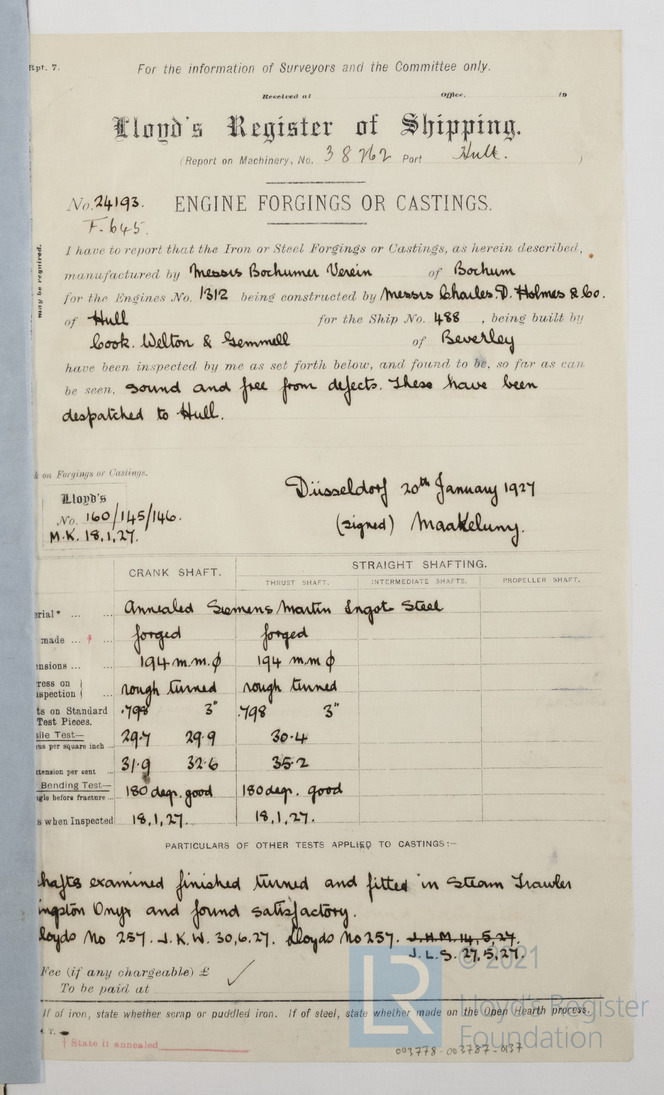 Rpt. 7.
For the information of Surveyors and the Committee only.
Received at Office, 19
Lloyd's Register of Shipping.
(Report on Machinery, No. 38762 Port Hull. )
No. 24193. ENGINE FORGINGS OR CASTINGS.
F. 645.
I have to report that the Iron or Steel Forgings or Castings, as herein described,
manufactured by Messrs Bochumer Verein of Bochum
for the Engines No. 1312 being constructed by Messrs Charles D. Holmes & Co.
of Hull for the Ship No. 488 , being built by
Cook. Welton & Gemmell of Beverley
have been inspected by me as set forth below, and found to be, so far as can
be seen, sound and free from defects. These have been
despatched to Hull.
may be required.
k on Forgings or Castings.
Lloyd's
No. 160/145/146.
M.K. 18,1,27.
Düsseldorf 20th January 1927
(signed)
CRANK SHAFT. STRAIGHT SHAFTING.
THRUST SHAFT. INTERMEDIATE SHAFTS. PROPELLER SHAFT.
erial* ... ... Annealed Siemens Martin Ingot Steel
made ... † ... forged forged
ensions ... ... 194 m.m. ϕ 194 m.m ϕ
ress on
nspection rough turned rough turned
ts on Standard .798 3" .798 3"
Test Pieces.
sile Test—
ons per square inch ... 29.7 29.9 30.4
xtension per cent ... 31.9 32.6 35.2
Bending Test—
ngle before fracture ... 180 degr. good 180 degr. good
s when Inspected 18,1,27. 18,1,27.
PARTICULARS OF OTHER TESTS APPLIED TO CASTINGS:—
hafts examined finished turned and fitted in Steam Trawler
ingston Onyx and found satisfactory.
loyds No 257. J.K.W. 30,6,27. Lloyds No 257. J.H.M. 14,5,27.
J.L.S. 27,5,27.
Fee (if any chargeable) £ ✓
To be paid at
If of iron, state whether scrap or puddled iron. If of steel, state whether made on the Open Hearth process.
† State if annealed
003778-003787-0137
© 2021
LR
Lloyd's Register
Foundation